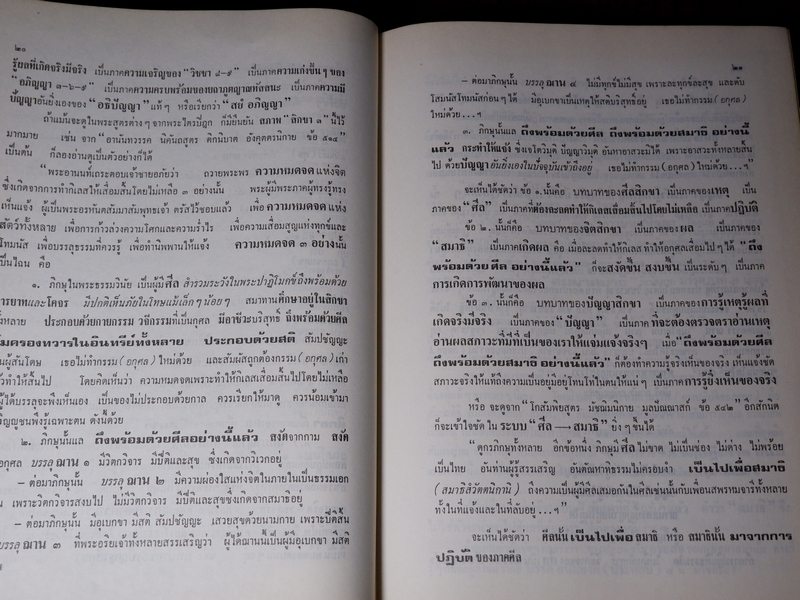 ๒๐
รู้ผลที่เกิดจริงมีจริง เป็นภาคความเจริญของ "วิชชา ๘-๙" เป็นภาคความเก่งขึ้นๆ ของ
"อภิญญา ๓-๖-๙" เป็นภาคความครบพร้อมของยถาภูตญาณทัสสนะ เป็นภาคความมี
ปัญญาอันยิ่งเองของ "อธิปัญญา" แท้ๆ หรือเรียกว่า "สยํ อภิญญา"
ถ้าแม้นจะดูในพระสูตรต่างๆ จากพระไตรปิฎก ก็มียืนยัน สภาพ "สิกขา ๓" นี้ไว้
มากมาย เช่น จาก "อานันทวรรค นิคัณฐสูตร ติกนิบาต อังคุตตรนิกาย ข้อ ๕๑๔"
เป็นต้น ก็ลองอ่านดูเป็นตัวอย่างก็ได้
"พระอานนท์เถระตอบเจ้าชายอภัยว่า ถวายพระพร ความหมดจด แห่งจิต
ซึ่งเกิดจากการทำกิเลสให้เสื่อมสิ้นโดยไม่เหลือ ๓ อย่างนั้น พระผู้มีพระภาคผู้ทรงรู้ทรง
เห็นแจ้ง ผู้เป็นพระอรหันตสัมมาสัมพุทธเจ้า ตรัสไว้ชอบแล้ว เพื่อ ความหมดจด แห่ง
สัตว์ทั้งหลาย เพื่อการก้าวล่วงความโศกและความร่ำไร เพื่อความเสื่อมสูญแห่งทุกข์และ
โทมนัส เพื่อบรรลุธรรมที่ควรรู้ เพื่อทำนิพพานให้แจ้ง ความหมดจด ๓ อย่างนั้น
เป็นไฉน คือ
๑. ภิกษุในพระธรรมวินัย เป็นผู้มีศีล สำรวมระวังในพระปาฏิโมกข์ถึงพร้อมด้วย
ารยาทและโคจร มีปกติเห็นภัยในโทษแม้เล็กๆ น้อยๆ สมาทานศึกษาอยู่ในสิกขา
ั้งหลาย ประกอบด้วยกายกรรม วจีกรรมที่เป็นกุศล มีอาชีวะบริสุทธิ์ ถึงพร้อมด้วยศีล
มครองทวารในอินทรีย์ทั้งหลาย ประกอบด้วยสติ สัมปชัญญะ
นผู้สันโดษ เธอไม่ทำกรรม (อกุศล) ใหม่ด้วย และสัมผัสถูกต้องกรรม (อกุศล) เก่า
วทำให้สิ้นไป โดยคิดเห็นว่า ความหมดจดเพราะทำกิเลสให้เสื่อมสิ้นไปโดยไม่เหลือ
ผู้ได้บรรลุจะพึงเห็นเอง เป็นของไม่ประกอบด้วยกาล ควรเรียกให้มาดู ควรน้อมเข้ามา
ิญญูชนพึงรู้เฉพาะตน ดังนี้ด้วย
๒. ภิกษุนั้นแล ถึงพร้อมด้วยศีลอย่างนี้แล้ว สงัดจากกาม สงัด
อกุศล บรรลุ ฌาน ๑ มีวิตกวิจาร มีปีติและสุข ซึ่งเกิดจากวิเวกอยู่
- ต่อมาภิกษุนั้น บรรลุ ฌาน ๒ มีความผ่องใสแห่งจิตในภายในเป็นธรรมเอก
น เพราะวิตกวิจารสงบไป ไม่มีวิตกวิจาร มีปีติและสุขซึ่งเกิดจากสมาธิอยู่
- ต่อมาภิกษุนั้น มีอุเบกขา มีสติ สัมปชัญญะ เสวยสุขด้วยนามกาย เพราะปีติสิ้น
บรรลุ ฌาน ๓ ที่พระอริยเจ้าทั้งหลายสรรเสริญว่า ผู้ได้ฌานนี้เป็นผู้มีอุเบกขา มีสติ
๒๑
- ต่อมาภิกษุนั้น บรรลุ ฌาน ๔ ไม่มีทุกข์ไม่มีสุข เพราะละทุกข์ละสุข และดับ
โสมนัสโทมนัสก่อนๆ ได้ มีอุเบกขาเป็นเหตุให้สติบริสุทธิ์อยู่ เธอไม่ทำกรรม (อกุศล)
ใหม่ด้วย...ฯ
๓. ภิกษุนั้นแล ถึงพร้อมด้วยศีล ถึงพร้อมด้วยสมาธิ อย่างนี้
แล้ว กระทำให้แจ้ง ซึ่งเจโตวิมุติ ปัญญาวิมุติ อันหาอาสวะมิได้ เพราะอาสวะทั้งหลายสิ้น
ไป ด้วยปัญญาอันยิ่งเองในปัจจุบันเข้าถึงอยู่ เธอไม่ทำกรรม (อกุศล) ใหม่ด้วย...ฯ"
จะเห็นได้ชัดว่า ข้อ ๑. นั้นคือ บทบาทของศีลสิกขา เป็นภาคของเหตุ เป็น
ภาคของ "ศีล" เป็นภาคที่ต้องละลดทำให้กิเลสเสื่อมสิ้นไปโดยไม่เหลือ เป็นภาคปฏิบัติ
ข้อ ๒. นั้นก็คือ บทบาทของจิตสิกขา เป็นภาคของผล เป็นภาคของ
"สมาธิ" เป็นภาคเกิดผล คือ เมื่อละลดทำให้กิเลส ทำให้อกุศลเสื่อมไปๆ ได้ "ถึง
พร้อมด้วยศีล อย่างนี้แล้ว" ก็จะสงัดขึ้น สงบขึ้น เป็นระดับๆ เป็นภาค
การเกิดการพัฒนาของผล
ข้อ ๓. นั้นก็คือ บทบาทของปัญญาสิกขา เป็นภาคของการรู้เหตุรู้ผลที่
เกิดจริงมีจริง เป็นภาคของ "ปัญญา" เป็นภาคที่จะต้องตรวจตราอ่านเหตุ
อ่านผลสภาวะที่มีที่เป็นของเราให้แจ่มแจ้งจริงๆ เมื่อ "ถึงพร้อมด้วยศีล
ถึงพร้อมด้วยสมาธิ อย่างนี้แล้ว" ก็ต้องทำความรู้จริงเห็นของจริง เห็นแจ้งชัด
สภาวะจริงให้แท้ถึงความเป็นอยู่มีอยู่โทนโท่ในตนให้แน่ๆ เป็นภาคการรู้ยิ่งเห็นของจริง
หรือ จะดูจาก "โกสัมพิยสูตร มัชฌิมนิกาย มูลปัณณาสก์ ข้อ ๕๔๒" อีกสักนิด
ก็จะเข้าใจชัด ใน ระบบ "ศีล → สมาธิ" ยิ่งๆ ขึ้นได้
"ดูกรภิกษุทั้งหลาย อีกข้อหนึ่ง ภิกษุมีศีลไม่ขาด ไม่เป็นช่อง ไม่ด่าง ไม่พร้อย
เป็นไทย อันท่านผู้รู้สรรเสริญ อันตัณหาทิฐิไม่ครอบงำ เป็นไปเพื่อสมาธิ
(สมาธิสํวัตตนิกานิ) ถึงความเป็นผู้มีศีลเสมอกันในศีลเช่นนั้นกับเพื่อนสพรหมจารีทั้งหลาย
ทั้งในที่แจ้งและในที่ลับอยู่...ฯ"
จะเห็นได้ชัดว่า ศีลนั้น เป็นไปเพื่อ สมาธิ หรือ สมาธินั้น มาจากการ
ปฏิบัติ ของภาคศีล